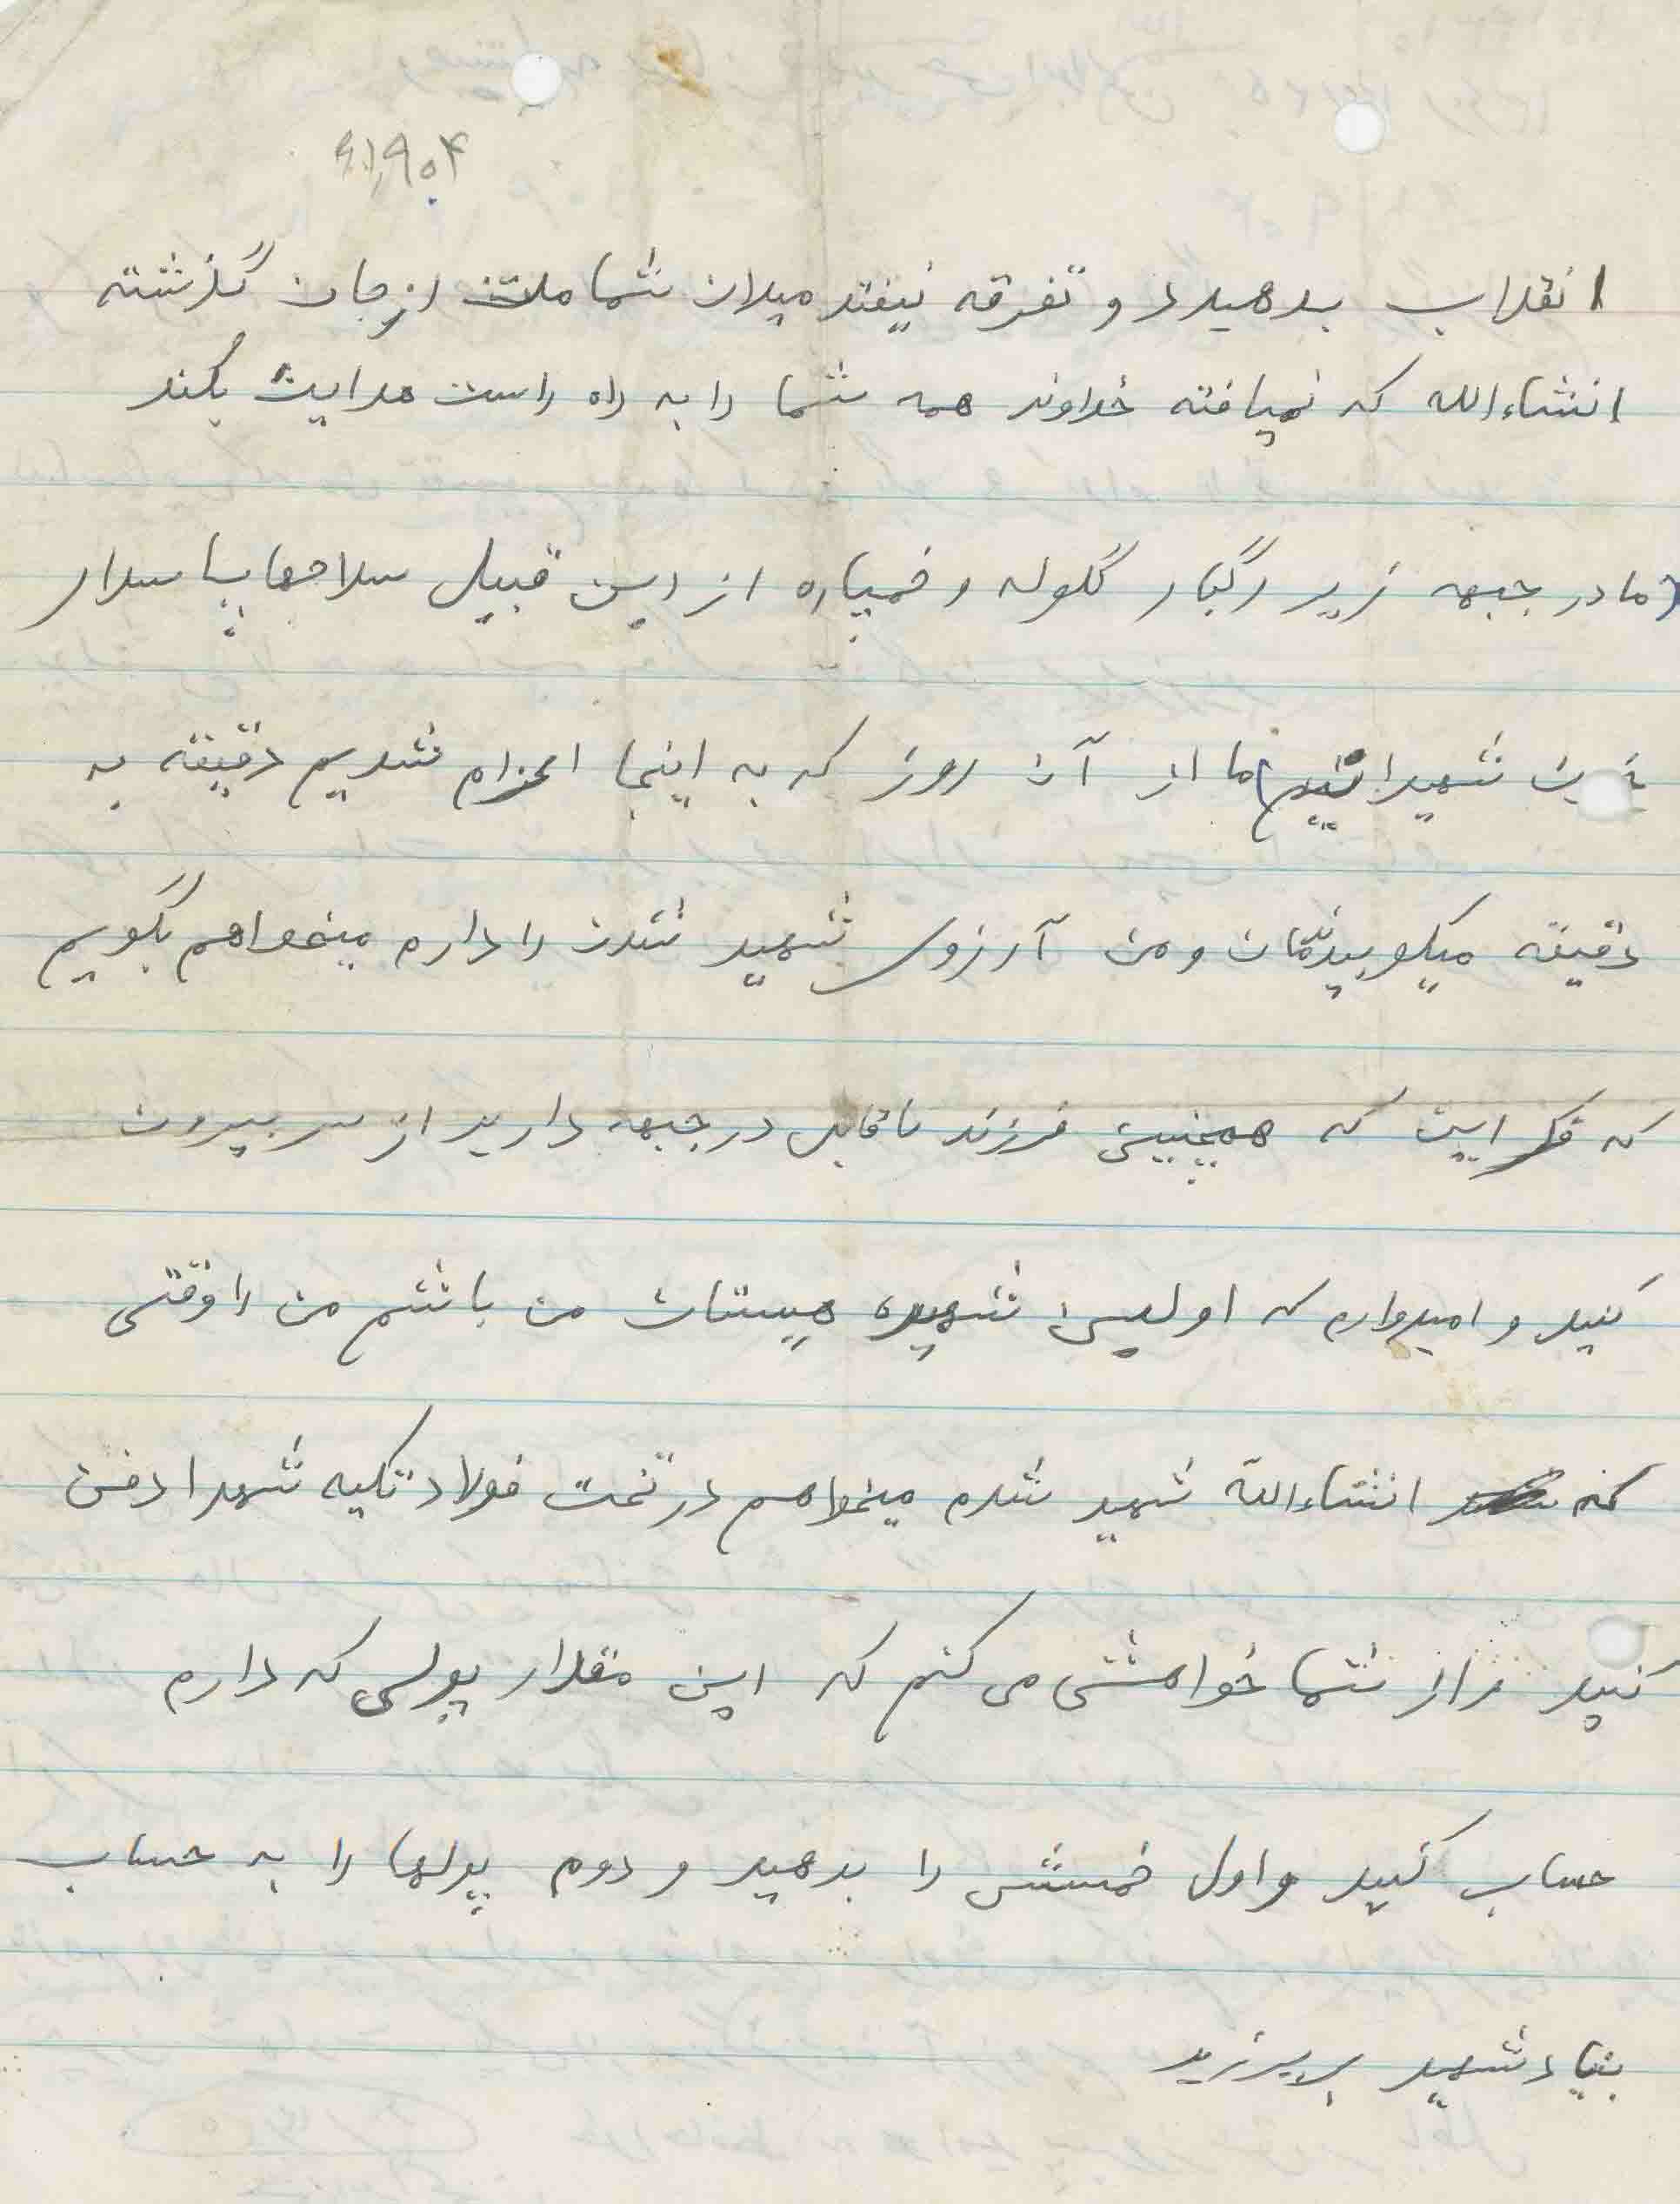 ۶۱٫۹۰۴
انقلاب بدهید و تفرقه نیفتد میلان شما ملت از جان گذشته
انشاءالله که نمیافته خداوند همه شما را به راه راست هدایت بکند
ما در جبهه زیر رگبار گلوله و خمپاره از این قبیل سلاحها پاسدار
شهیدا ما از آن روز که به اینجا اعزام شدیم دقیقه به
دقیقه میکوبیدنمان و من آرزوی شهید شدن را دارم میخواهم بگویم
که فکر این که همچنین فرزند ناقابل در جبهه دارید از سر بیرون
کنید و امیدوارم که اولین شهید من باشم من را وقتی
که انشاءالله شهید شدم میخواهم در تخت فولاد تکیه شهدا دفن
کنید و از شما خواهش می کنم که این مقدار پولی که دارم
حساب کنید و اول خمسش را بدهید و دوم پولها را به حساب
بنیاد شهید بریزید